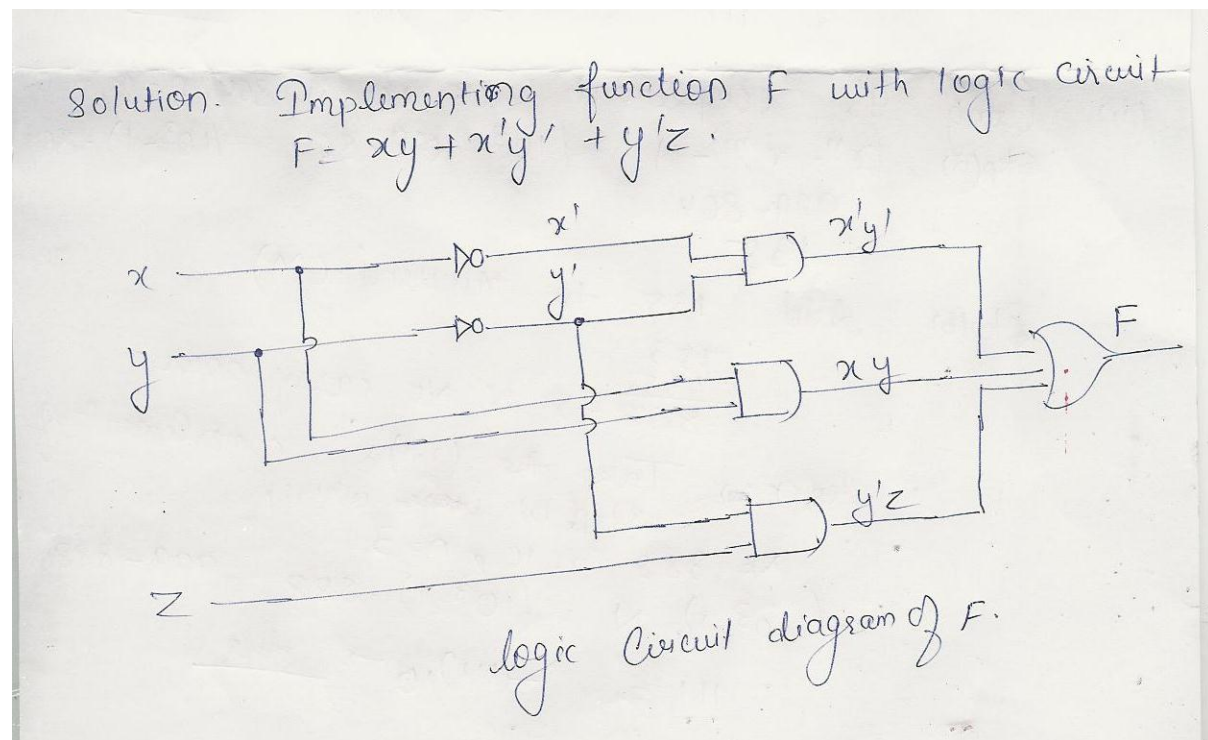 Solution. Implementing function F with logic circuit
F= xy + x'y' + y'z.
x'
x'y'
x
y'
F
y
xy
y'z
Z
logic Circuit diagram of F.